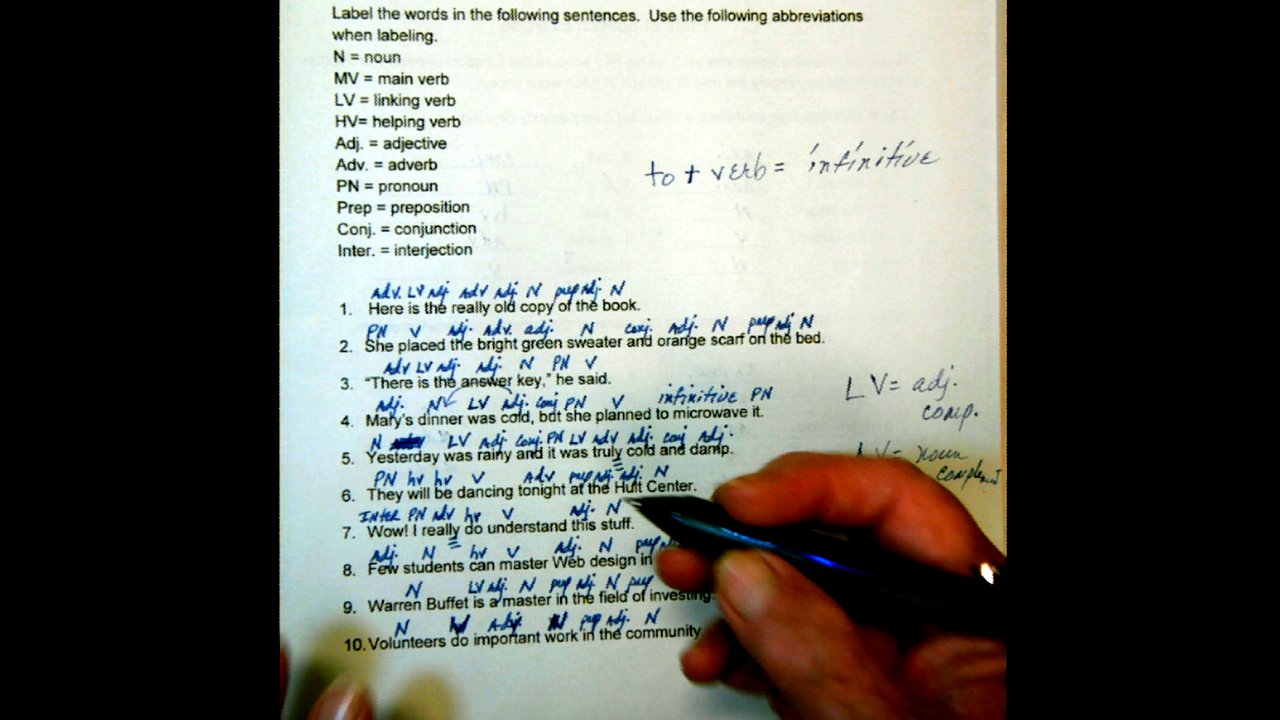 Label the words in the following sentences. Use the following abbreviations
when labeling.
N = noun
MV = main verb
LV = linking verb
HV= helping verb
Adj. = adjective
Adv. = adverb
PN = pronoun
Prep = preposition
Conj. = conjunction
Inter. = interjection
to + verb = infinitive
Adv. LV Adj Adv Adj N prep Adj N
1. Here is the really old copy of the book.
PN V Adj. Adv. adj. N conj. Adj. N prep adj N
2. She placed the bright green sweater and orange scarf on the bed.
Adv LV Adj. Adj. N PN V
3. "There is the answer key," he said.
Adj. N LV Adj. Conj PN V infinitive PN
4. Mary's dinner was cold, but she planned to microwave it.
LV = adj.
comp.
N LV Adj Conj. PN LV Adv Adj. conj Adj.
5. Yesterday was rainy and it was truly cold and damp.
LV = noun
PN hv hv V Adv prep adj. adj. N
6. They will be dancing tonight at the Hult Center.
INter PN adv hv V adj. N
7. Wow! I really do understand this stuff.
Adj. N hv V Adj. N prep
8. Few students can master Web design in
N LV adj. N prep adj N prep
9. Warren Buffet is a master in the field of investing.
N Adj prep adj. N
10. Volunteers do important work in the community